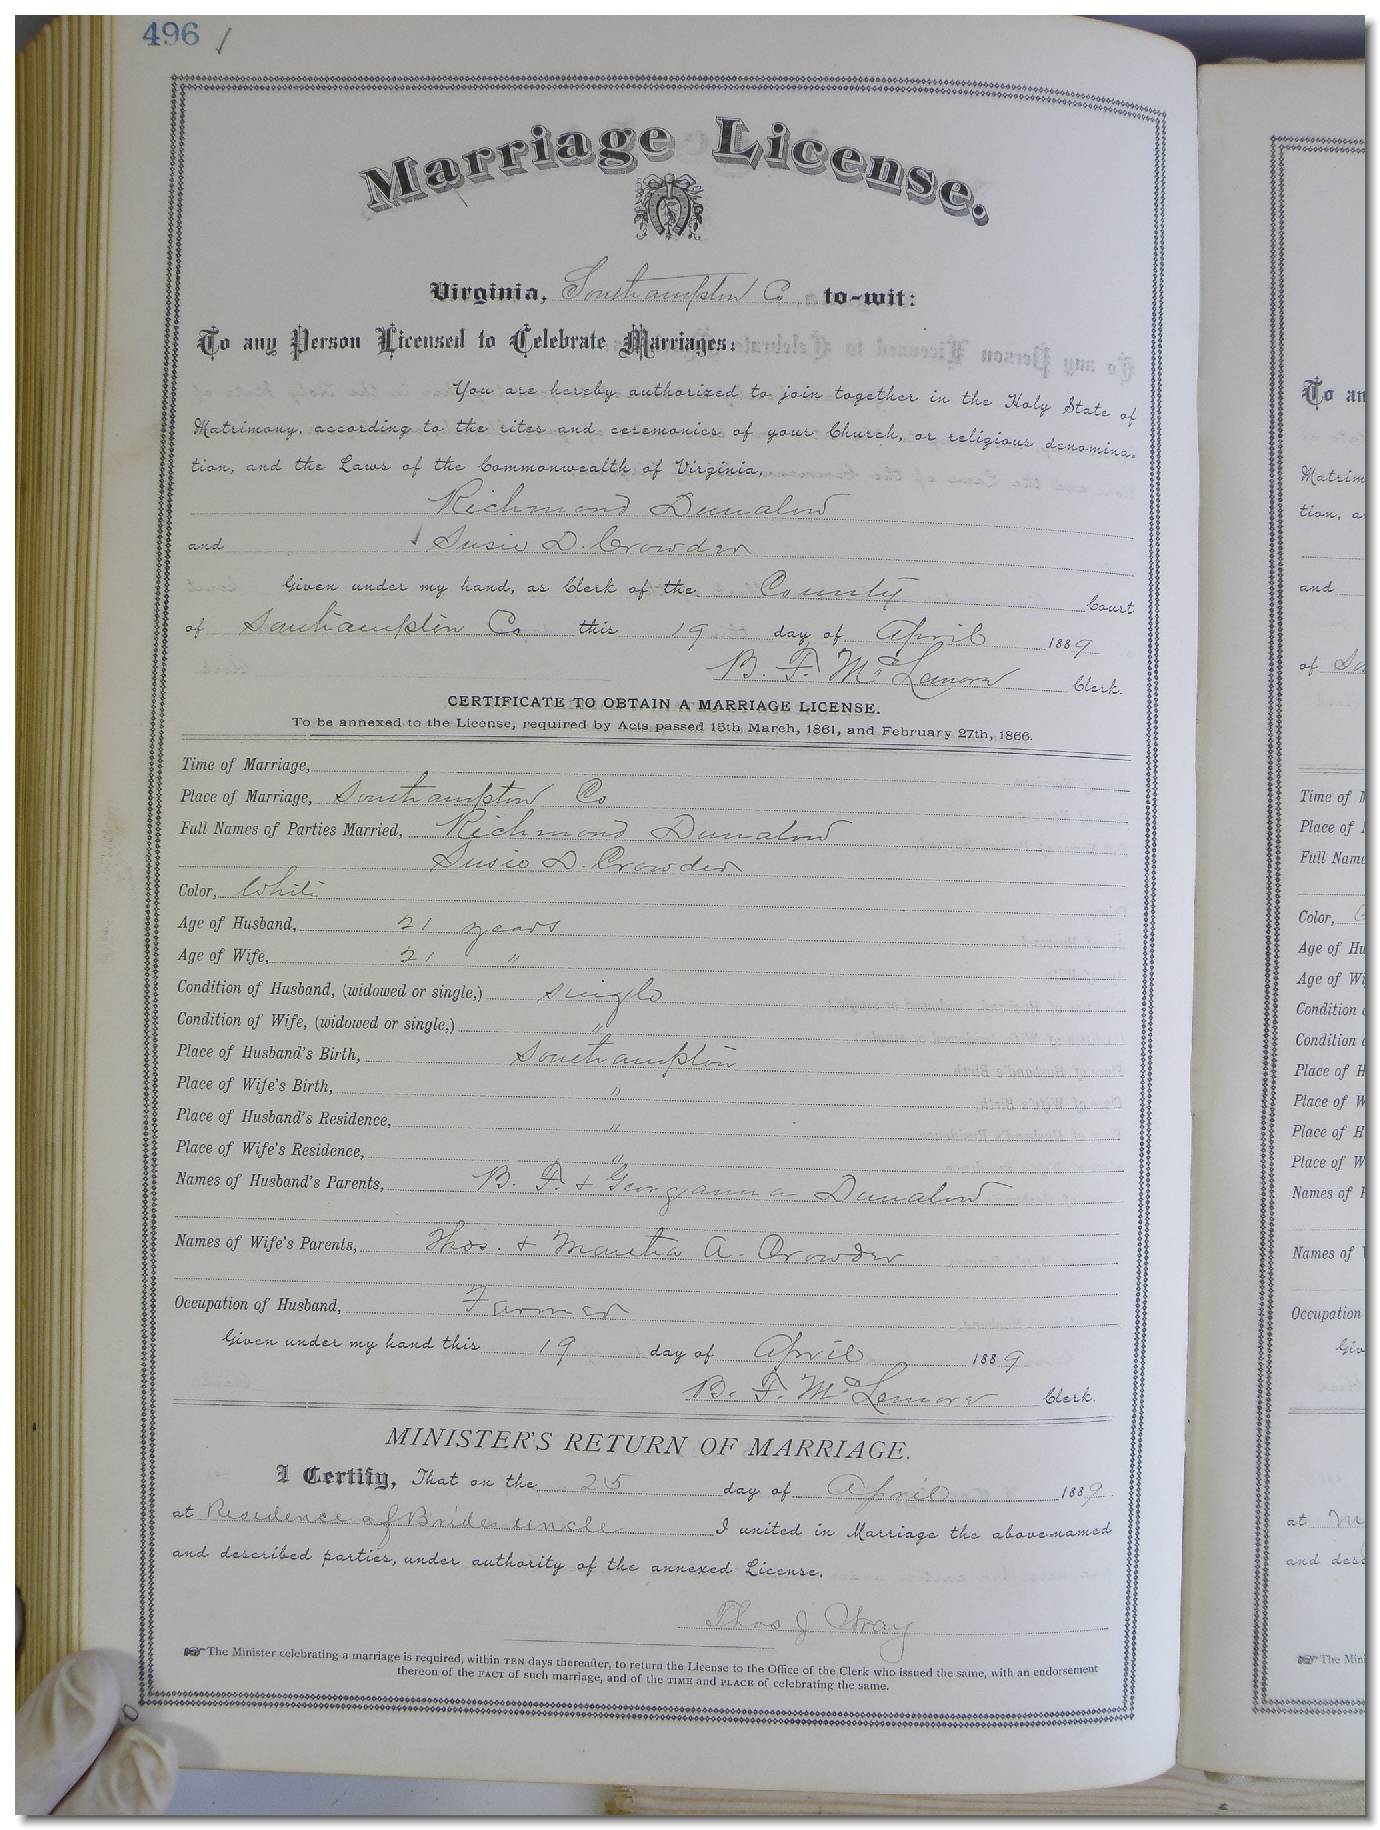 496 /
Marriage License.
Virginia, Southampton Co to-wit:
To any Person Licensed to Celebrate Marriages:
You are hereby authorized to join together in the Holy State of
Matrimony, according to the rites and ceremonies of your Church, or religious denomina-
tion, and the Laws of the Commonwealth of Virginia,
Richmond Dunalow
and Susie D. Crowder
Given under my hand, as Clerk of the County Court
of Southampton Co this 19 day of April 1889
B. F. McLemore Clerk.
CERTIFICATE TO OBTAIN A MARRIAGE LICENSE.
To be annexed to the License, required by Acts passed 15th March, 1861, and February 27th, 1866.
Time of Marriage,
Place of Marriage, Southampton Co
Full Names of Parties Married, Richmond Dunalow
Susie D. Crowder
Color, White
Age of Husband, 21 years
Age of Wife, 21 "
Condition of Husband, (widowed or single,) single
Condition of Wife, (widowed or single,) "
Place of Husband's Birth, Southampton
Place of Wife's Birth, "
Place of Husband's Residence, "
Place of Wife's Residence, "
Names of Husband's Parents, B. F. & Georgianna Dunalow
Names of Wife's Parents, Thos. & Martha A. Crowder
Occupation of Husband, Farmer
Given under my hand this 19 day of April 1889
B. F. McLemore Clerk.
MINISTER'S RETURN OF MARRIAGE.
I Certify, That on the 25 day of April 1889.
at Residence of Brides uncle I united in Marriage the above-named
and described parties, under authority of the annexed License.
Thos J Wray
The Minister celebrating a marriage is required, within TEN days thereafter, to return the License to the Office of the Clerk who issued the same, with an endorsement
thereon of the FACT of such marriage, and of the TIME and PLACE of celebrating the same.
To an
Matrim
tion, a
and
of So
Time of
Place of
Full Name
Color,
Age of Hu
Age of Wi
Condition
Condition
Place of H
Place of W
Place of H
Place of W
Names of
Names of
Occupation
Giv
at
and desc
The Mini